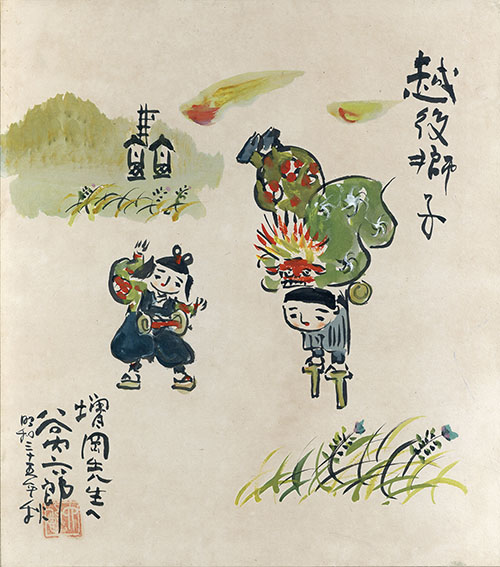 越後獅子
増岡先生へ
谷内六郎
昭和三十五年秋